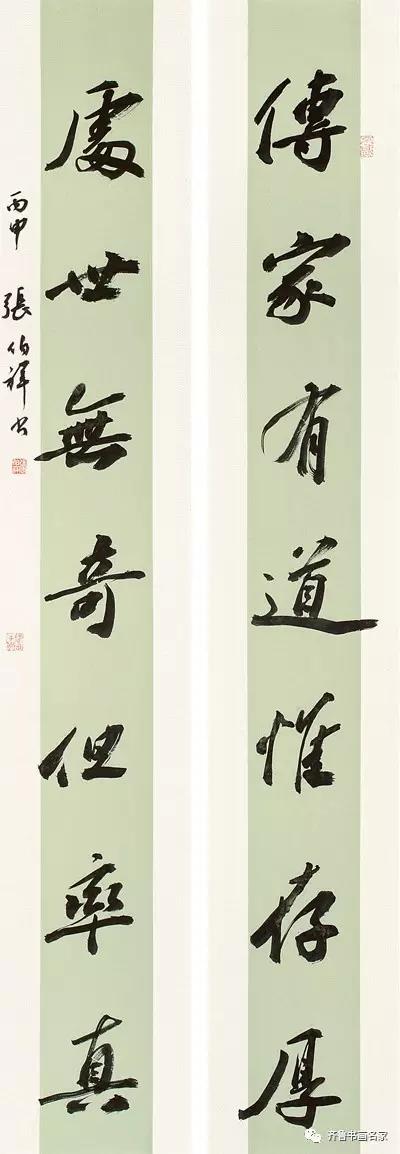 傳家有道惟存厚
處世無奇但率真
丙申 張伯祥书
齐鲁书画名家